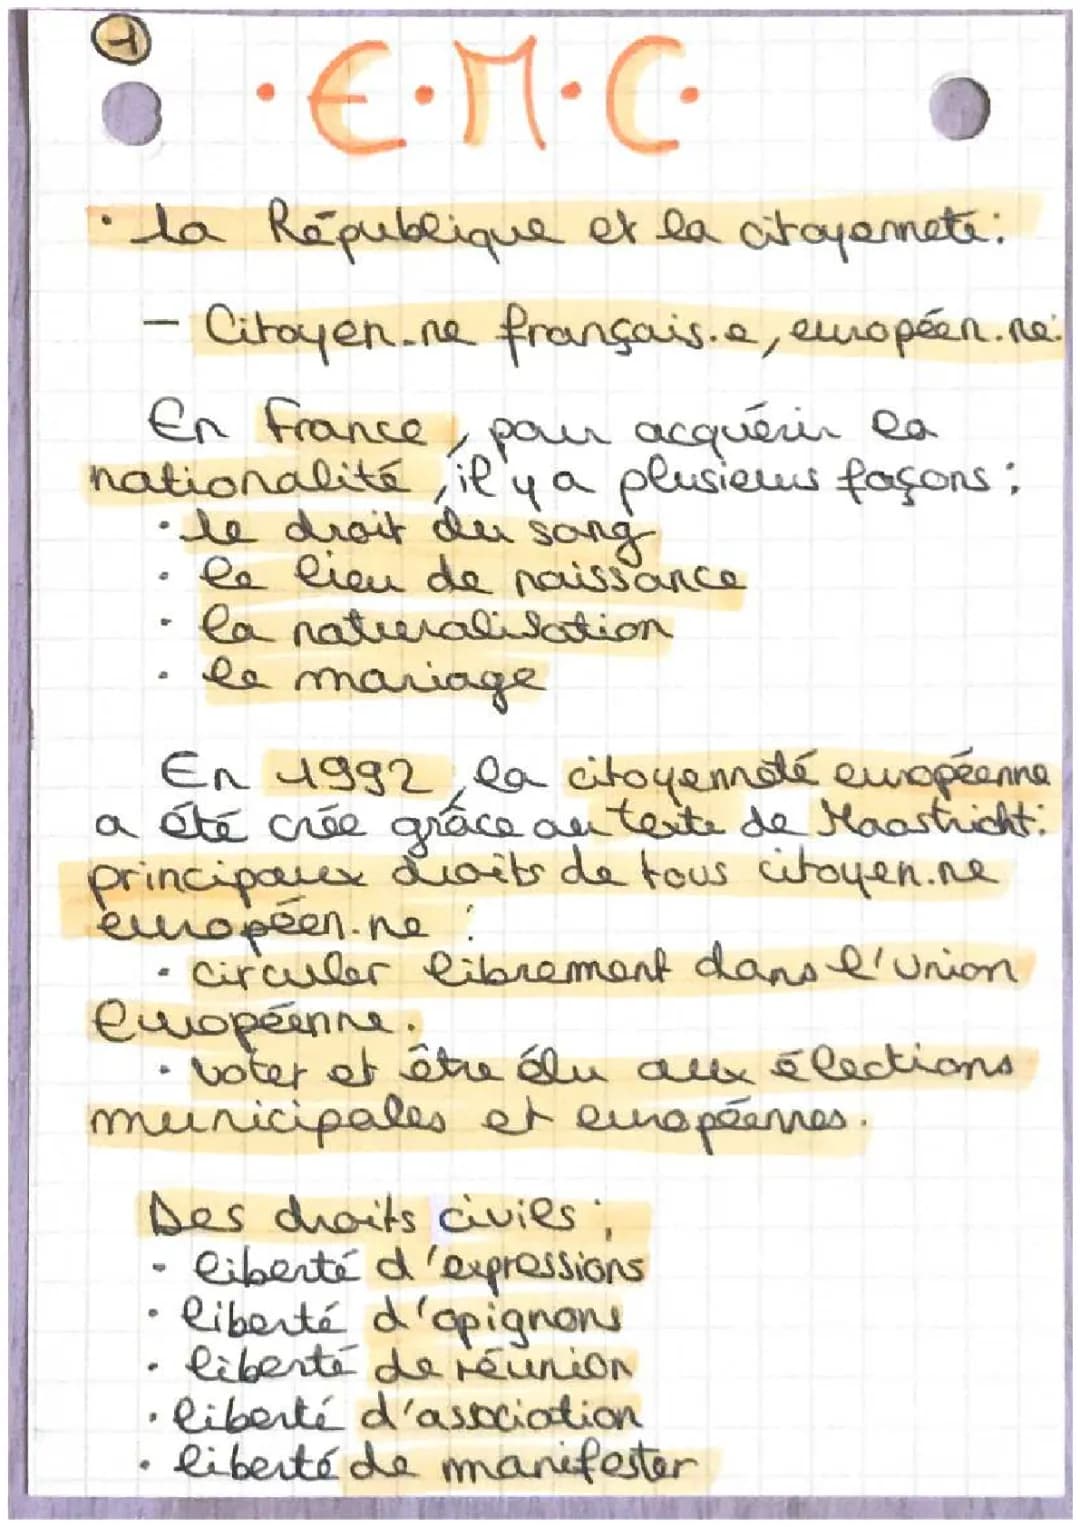 1
·E·M·C·
· La République et la citoyenneté :
- Citoyen.ne français.e, européen.ne :
En France, pour acquérir la
nationalité, il y a plusieurs façons :
· le droit du sang
· le lieu de naissance
· la naturalisation
· le mariage
En 1992, la citoyenneté européenne
a été crée grâce au texte de Maastricht :
principaux droits de tous citoyen.ne
européen.ne :
· circuler librement dans l'Union
Européenne.
· voter et être élu aux élections
municipales et européennes.
Des droits civils :
· liberté d'expressions
· liberté d'opignons
· liberté de réunion
· liberté d'association
· liberté de manifester